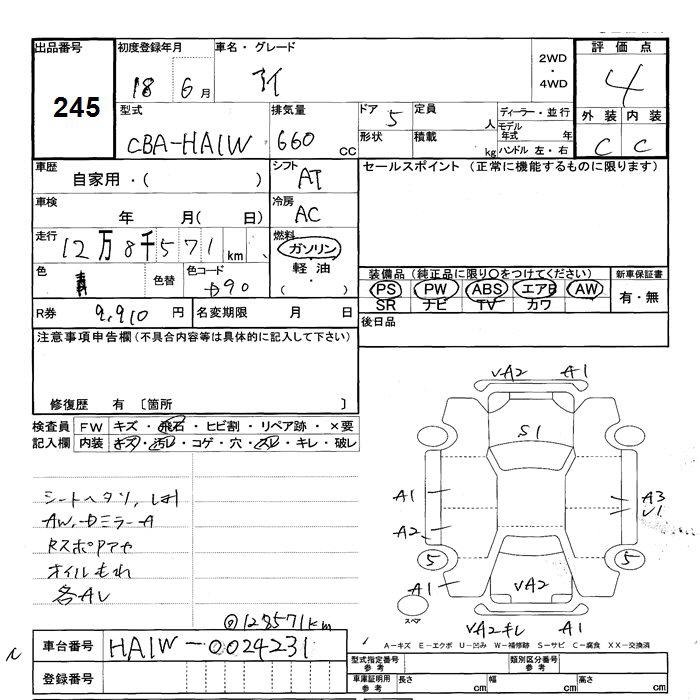 出品番号 初度登録年月 車名・グレード 2WD・4WD 評価点
245 18 6月 アイ 4
型式 排気量 ドア 5 定員 人 ディーラー・並行 外装 内装
CBA-HA1W 660 cc 形状 積載 kg モデル年式 年 C C
ハンドル 左・右
車歴 シフト セールスポイント (正常に機能するものに限ります)
自家用・( ) AT
車検 冷房
年 月( 日) AC
走行 燃料
12万8千571km ガソリン・軽油・( )
色 色替 色コード 装備品(純正品に限り○をつけてください) 新車保証書
青 D90 PS PW ABS エアB AW 有・無
SR ナビ TV カワ
R券 9,910円 名変期限 月 日 後日品
注意事項申告欄(不具合内容等は具体的に記入して下さい)
修復歴 有 〔箇所 〕
検査員 FW キズ・飛石・ヒビ割・リペア跡・×要
記入欄 内装 キズ・汚レ・コゲ・穴・スレ・キレ・破レ
VA2 A1
S1
A1 A3
V1
A2
5 5
VA2
A1
スペア
VA2キレ A1
AW, Dミラー A
オイルもれ
128571km
車台番号 HA1W-0024231
登録番号
A-キズ E-エクボ U-凹み W-補修跡 S-サビ C-腐食 XX-交換済
型式指定番号 参考 類別区分番号 参考
車庫証明用 参考 長さ cm 幅 cm 高さ cm